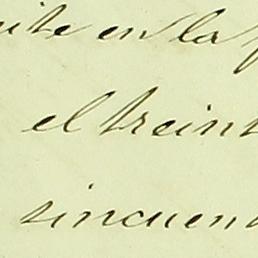 ite en la
el treint
sincuen